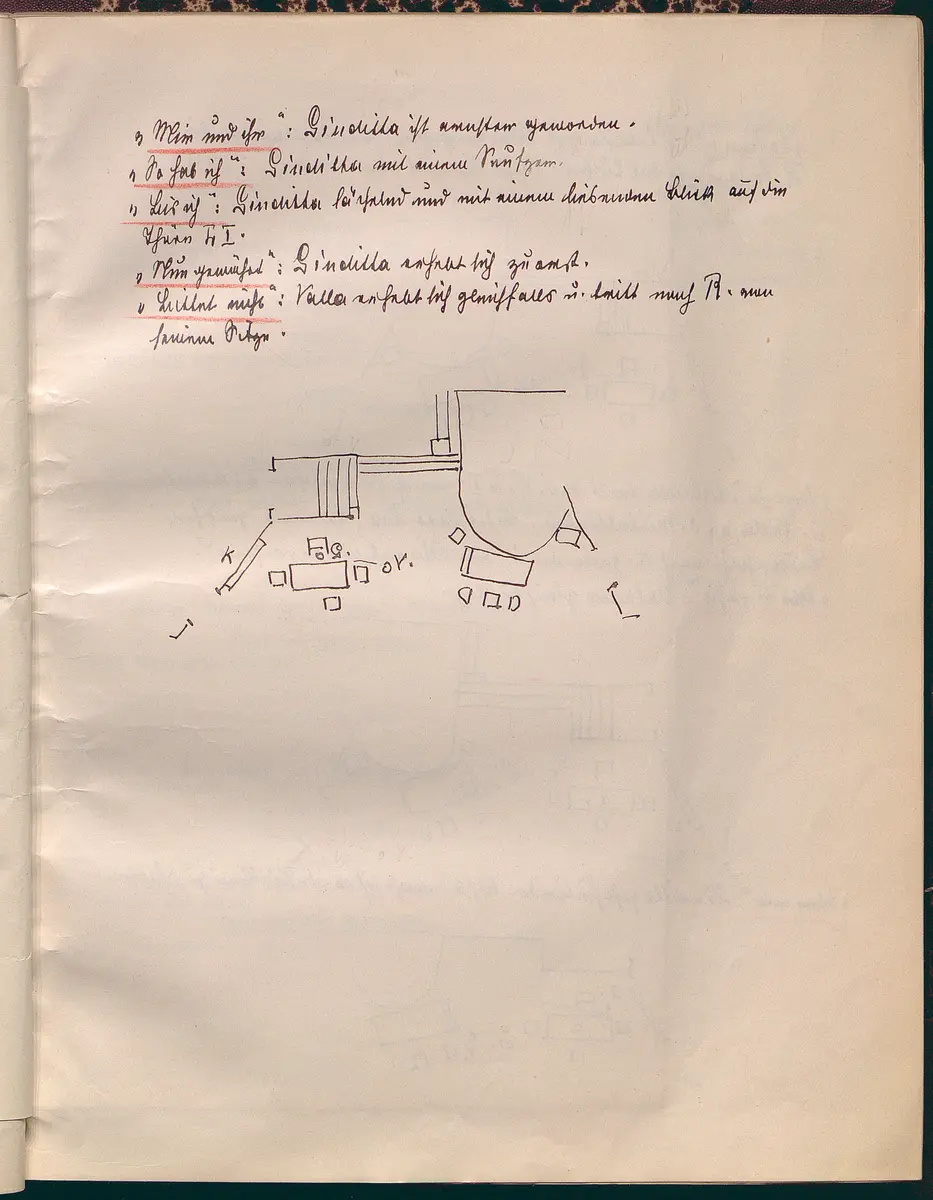 „Mir und ihr“: Giuditta ist ernster geworden.
„So hab ich“: Giuditta mit einem Seufzer.
„Bis ich“: Giuditta lächelnd und mit einem liebenden Blick auf die
Thüre LI.
„Nun gewährt“: Giuditta erhebt sich zuerst.
„Bittet nicht“: Valla erhebt sich gleichfalls u. tritt nach R. von
seinem Sitze.
K
G.
V.